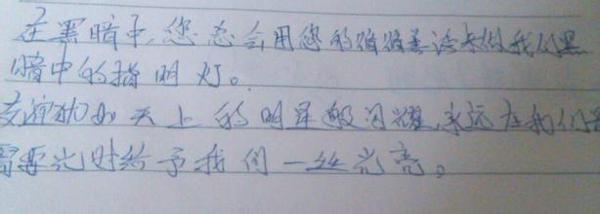 在黑暗中，您总会用您的循循善诱来做我们黑
暗中的指明灯。
友谊犹如天上的明星般闪耀，永远在我们
需要光时给予我们一丝光亮。